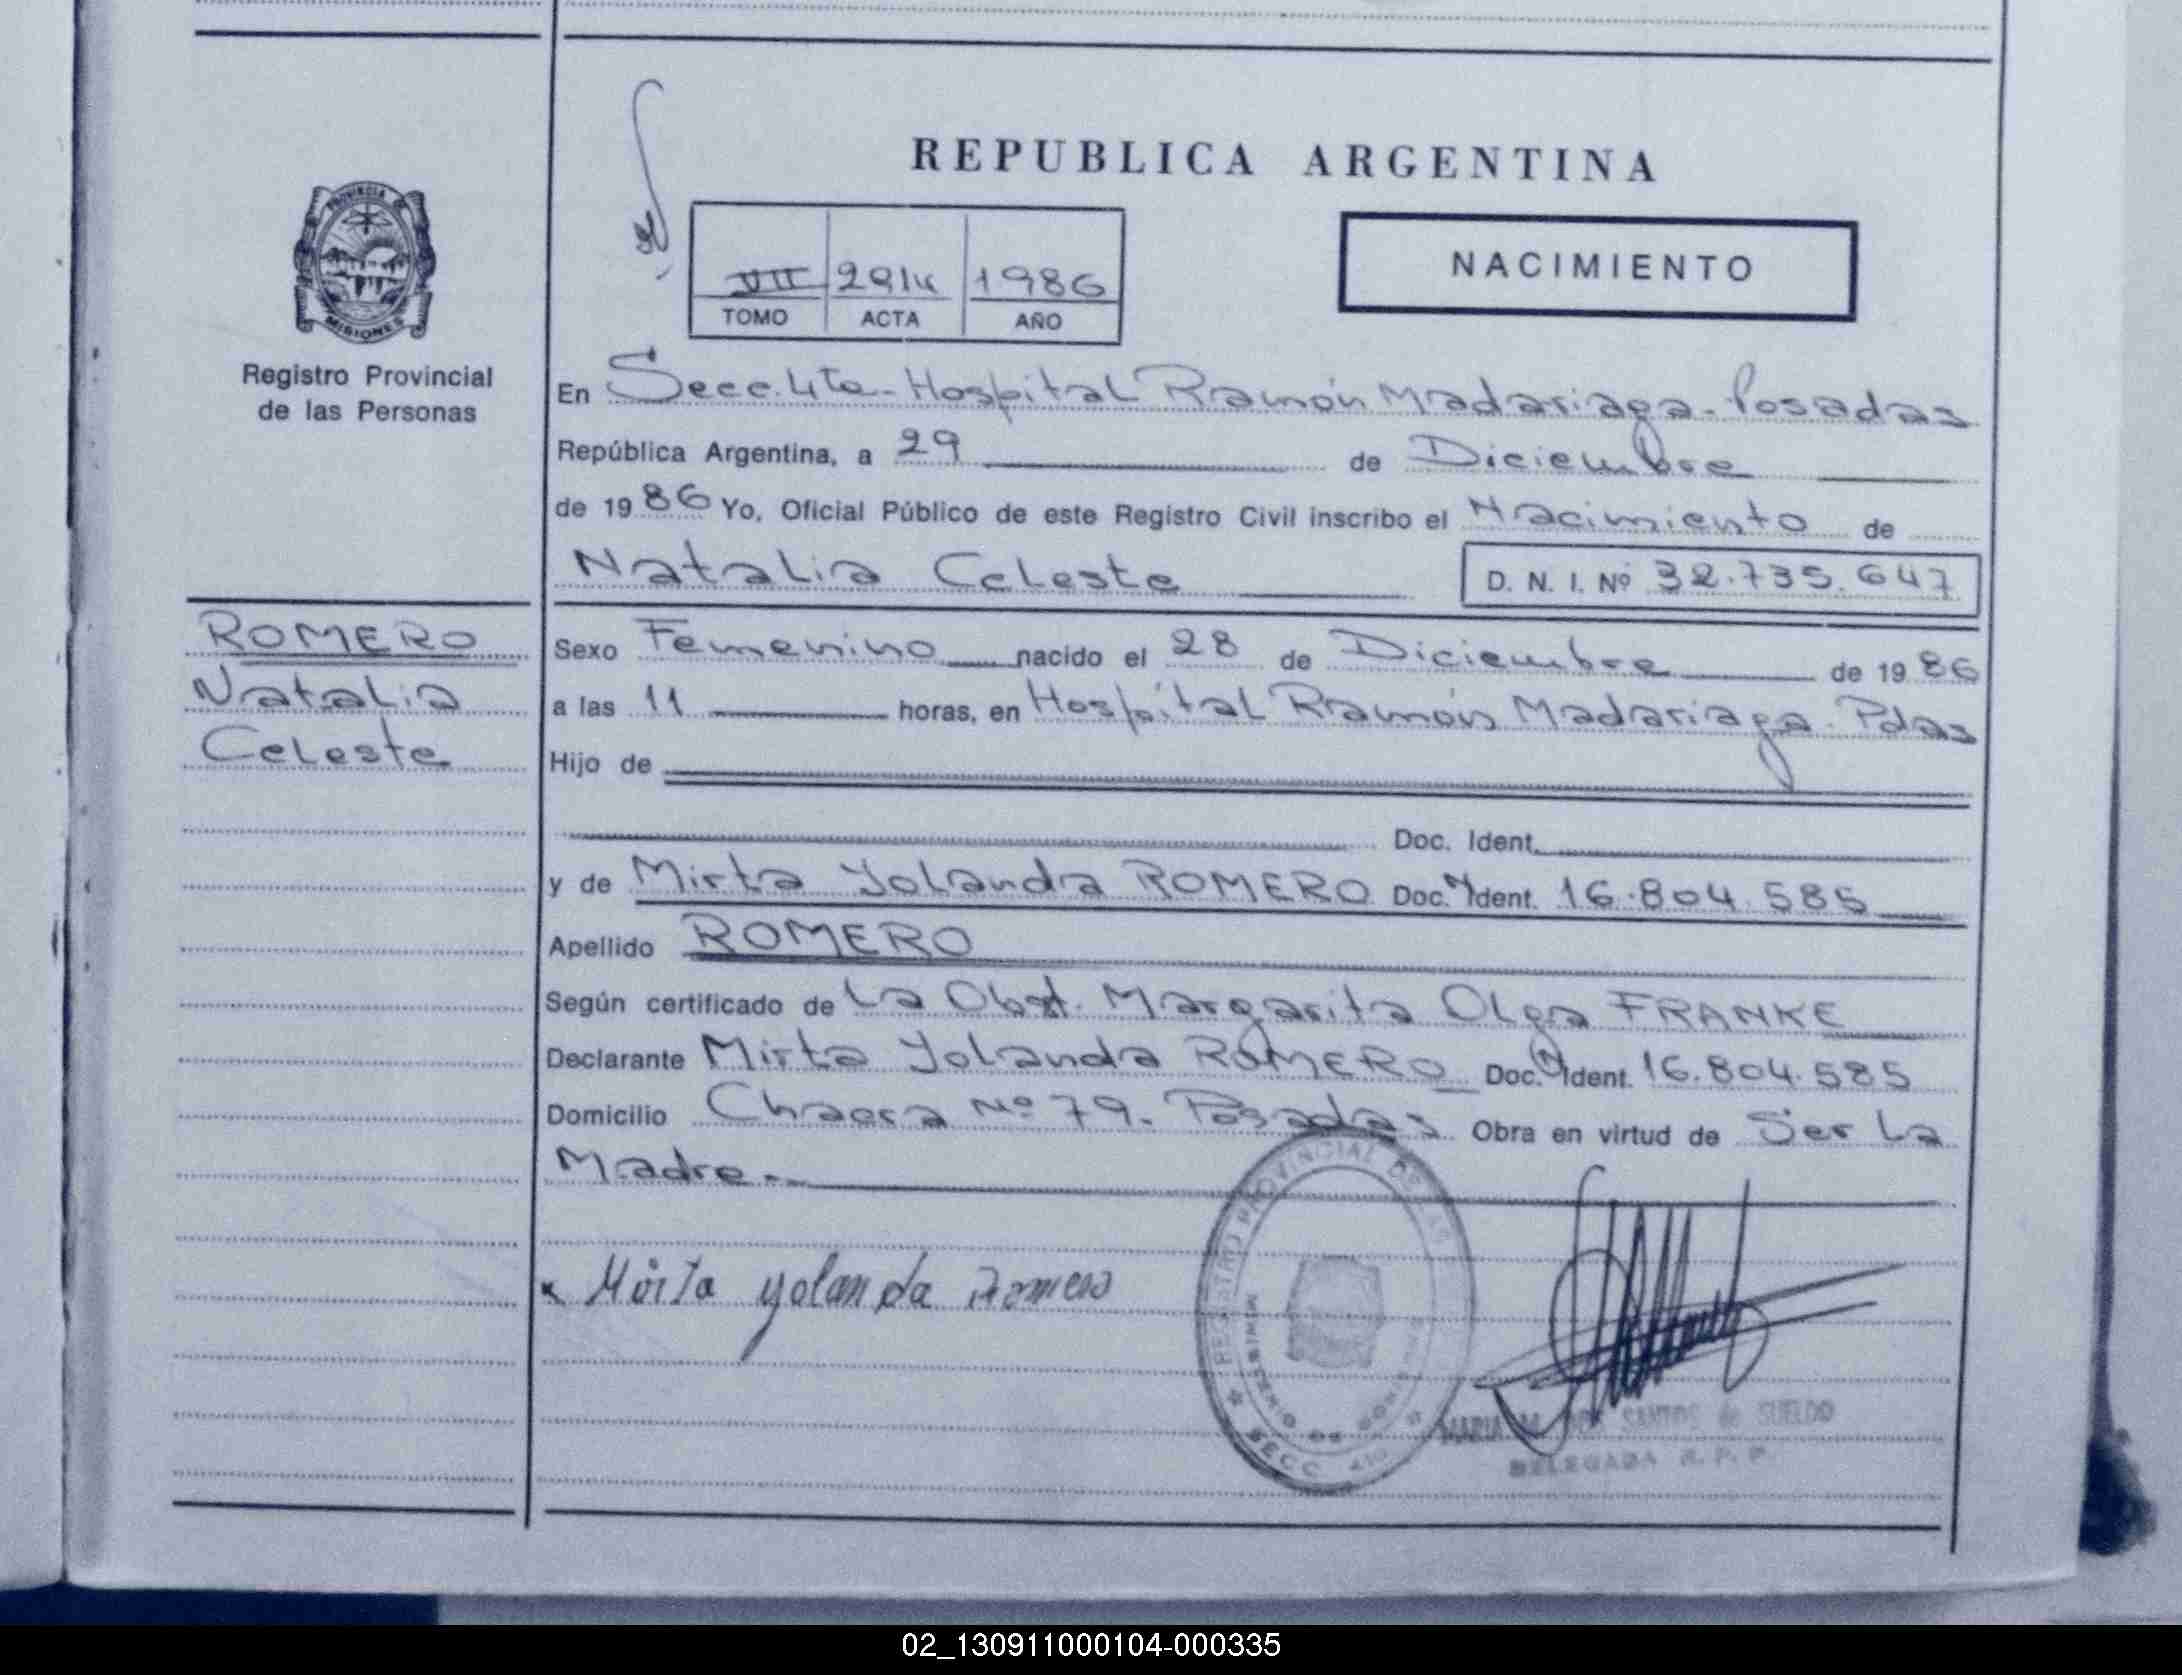 REPUBLICA ARGENTINA
PROVINCIA DE
MISIONES
Registro Provincial
de las Personas
VII 2914 1986
TOMO ACTA AÑO
NACIMIENTO
En Secc. 4ta - Hospital Ramón Madariaga - Posadas
República Argentina, a 29 de Diciembre
de 1986 Yo, Oficial Público de este Registro Civil inscribo el Nacimiento de
Natalia Celeste D. N. I. Nº 32.735.647
ROMERO
Natalia
Celeste
Sexo Femenino nacido el 28 de Diciembre de 1986
a las 11 horas, en Hospital Ramón Madariaga - Pdas
Hijo de
Doc. Ident.
y de Mirta Yolanda ROMERO Doc. Ident. 16.804.585
Apellido ROMERO
Según certificado de La Obst. Margarita Olga FRANKE
Declarante Mirta Yolanda ROMERO Doc. Ident. 16.804.585
Domicilio Chacra Nº 79 - Posadas Obra en virtud de Ser La
Madre.-
x Mirta Yolanda Romero
REGISTRO PROVINCIAL DE LAS
MINISTERIO DE GOBIERNO
SECC. 4ta
MARIA M. DOS SANTOS de SUELDO
DELEGADA R. P. P.
02_130911000104-000335